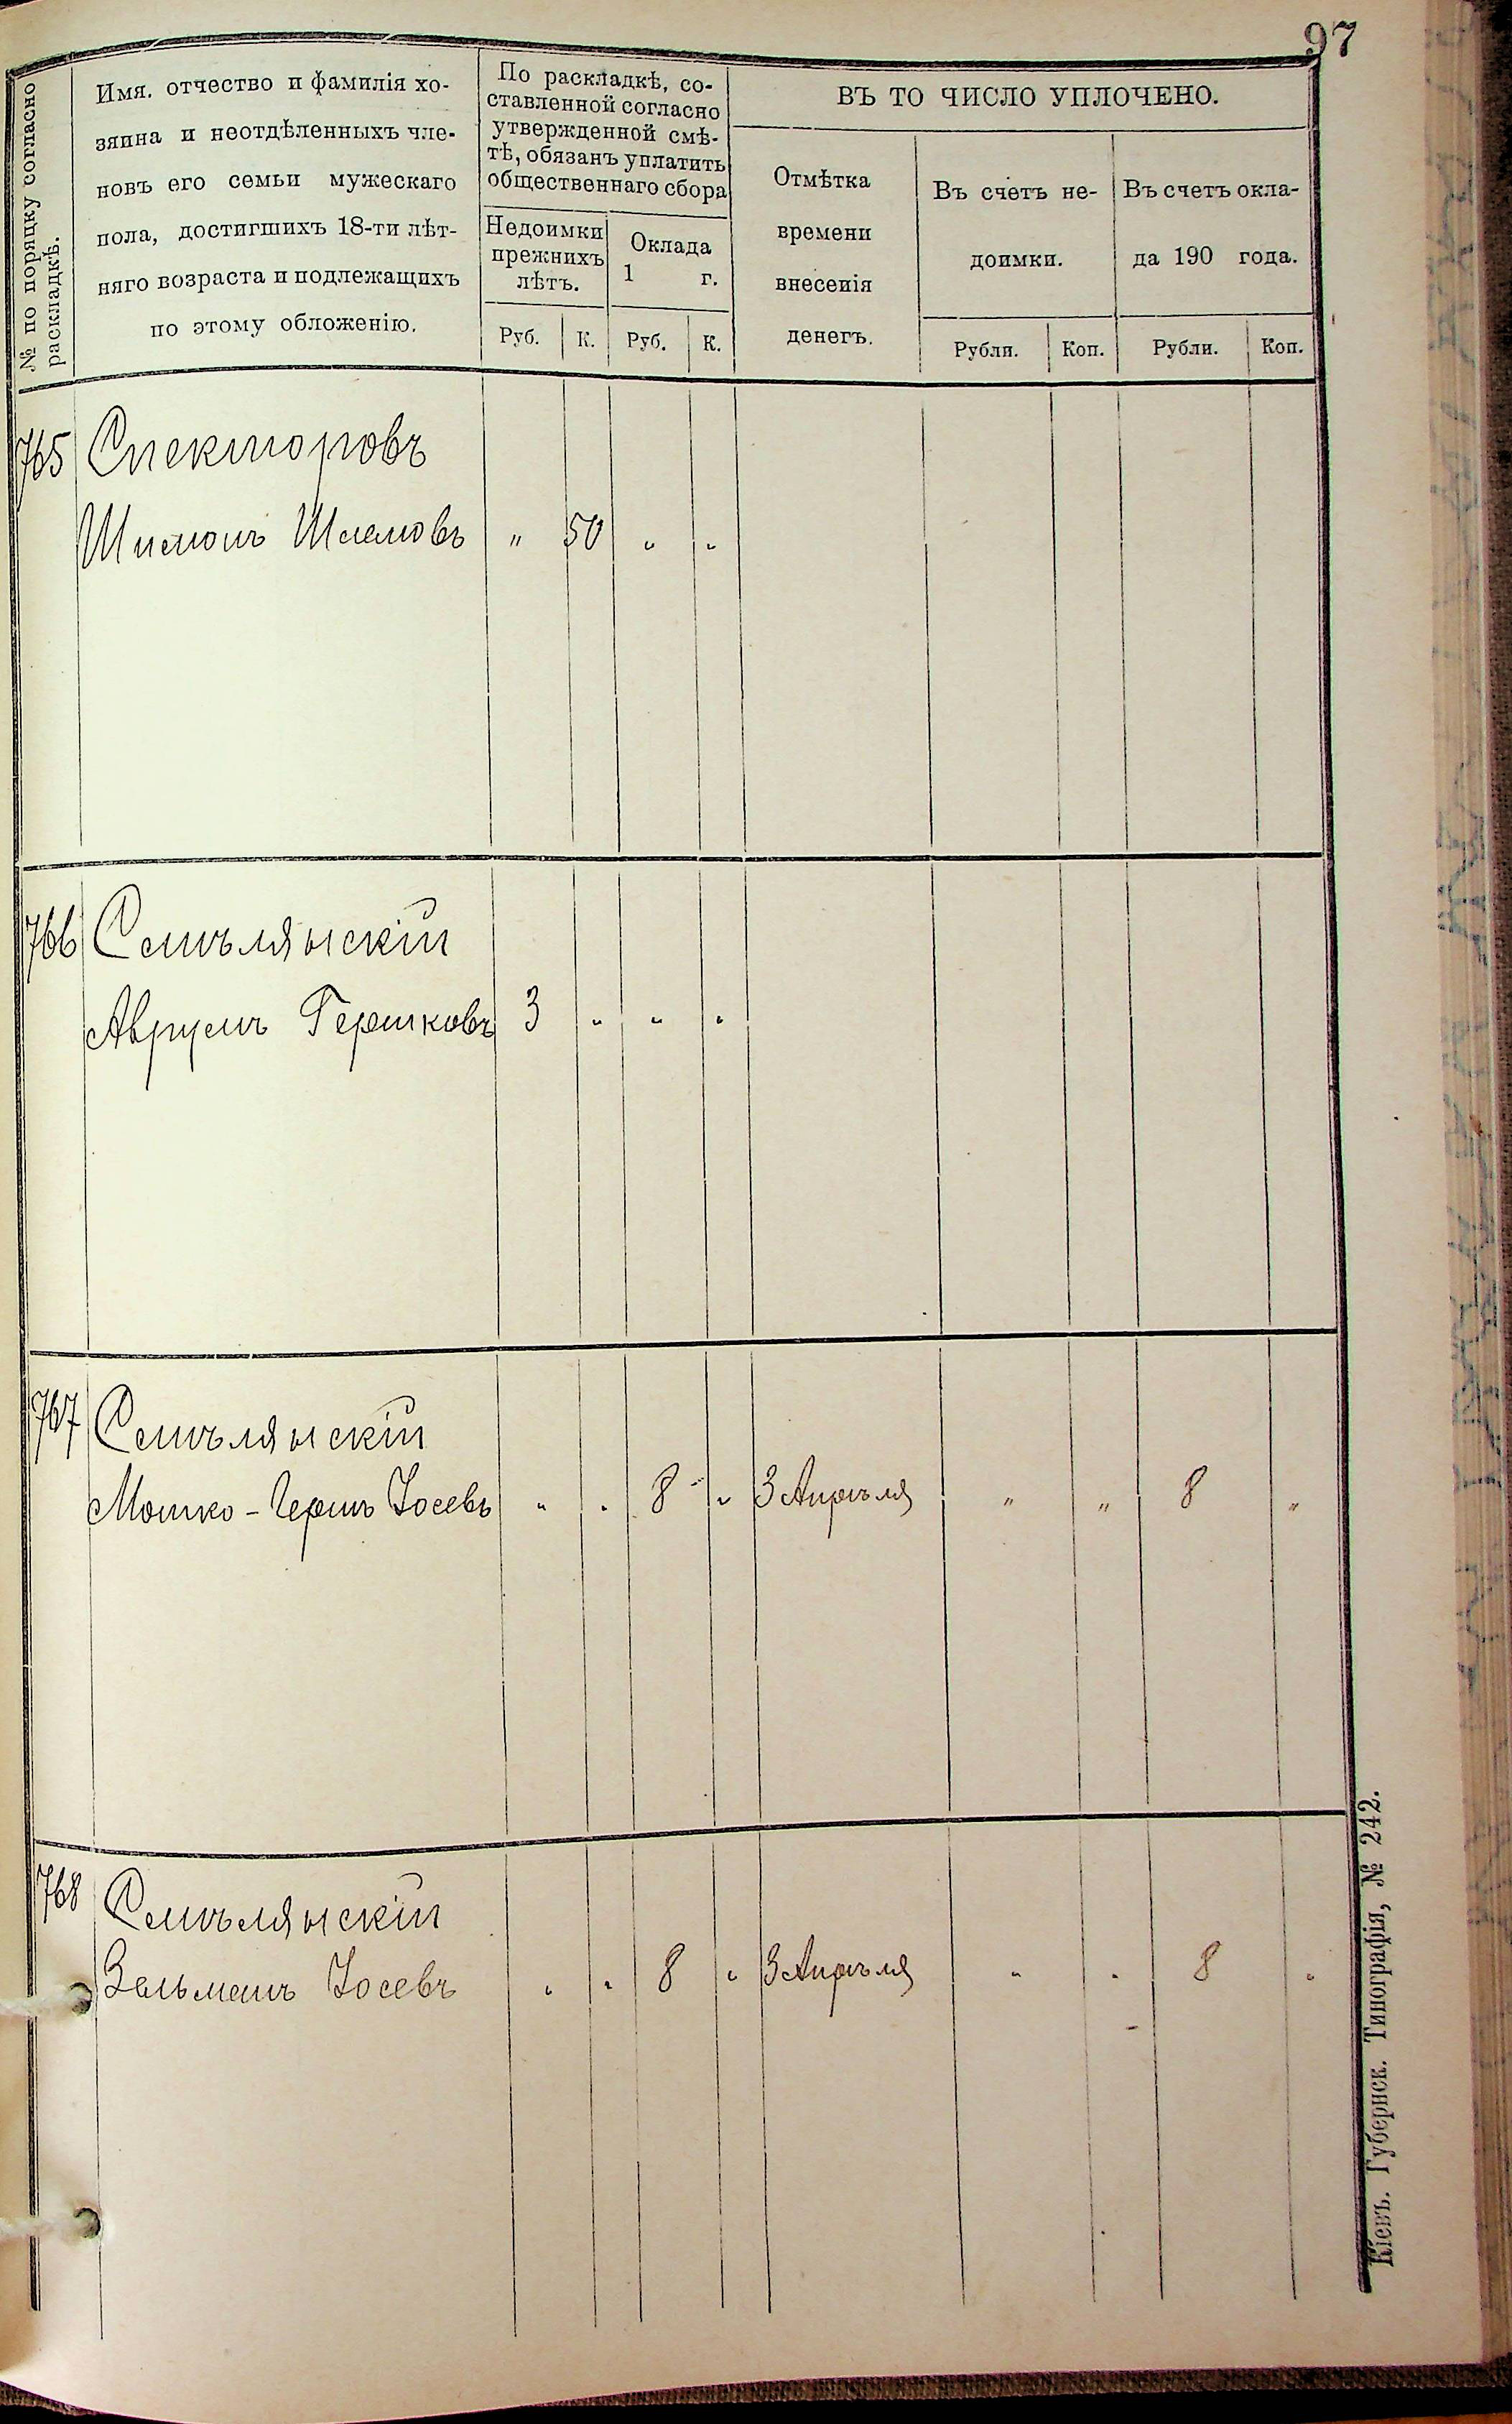 97
№ по поряцку согласно
раскладкѣ.
Имя. отчество и фамилія хо-
зяина и неотдѣленныхъ чле-
новъ его семьи мужескаго
пола, достигшихъ 18-ти лѣт-
няго возраста и подлежащихъ
по этому обложенію.
По раскладкѣ, со-
ставленной согласно
утвержденной смѣ-
тѣ, обязанъ уплатить
общественнаго сбора
Недоимки
прежнихъ
лѣтъ.
Оклада
1 г.
Руб. К. Руб. К.
ВЪ ТО ЧИСЛО УПЛОЧЕНО.
Отмѣтка
времени
внесенія
денегъ.
Въ счетъ не-
доимки.
Въ счетъ окла-
да 190 года.
Рубли. Коп. Рубли. Коп.
765 Спекторовъ
Шимонъ Шлемовъ " 50 " "
766 Смѣлянскій
Аврумъ Гершковъ 3 " " "
767 Смѣлянскій
Мошко-Гершъ Іосевъ " " 8 " 3 Апрѣля " " 8 "
768 Смѣлянскій
Зельманъ Іосевъ " " 8 " 3 Апрѣля " " 8 "
Кіевъ. Губернск. Типографія, № 242.